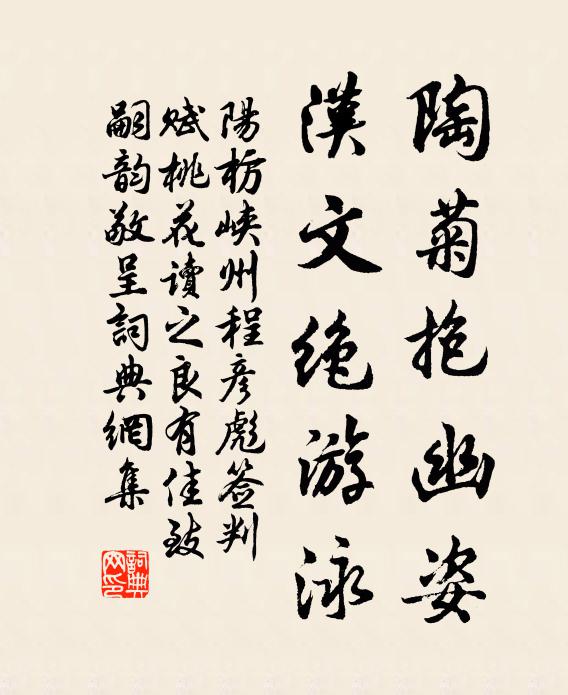 陶菊抱幽姿
漢文絶游泳
陽枥峽州程彦彪簽判
赋桃花讀之良有佳致
嗣韵敬呈詞典網集
詞典網印